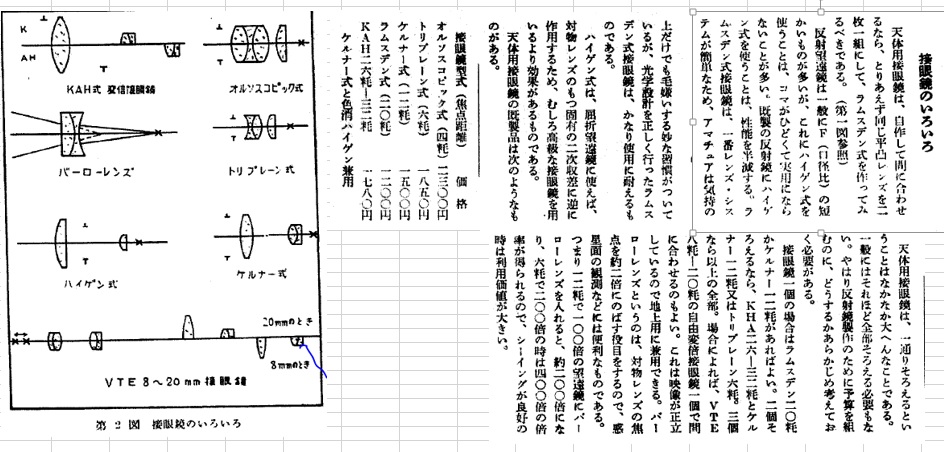 接眼鏡のいろいろ
天体用接眼鏡は、自作して間に合わせ
るなら、とりあえず同じ平凸レンズを二
枚一組にして、ラムスデン式を作ってみ
るべきである。（第一図参照）
反射望遠鏡は一般にF（口径比）の短
かいものが多いが、これにハイゲン式を
使うことは、コマがひどくて実用になら
ないことが多い。既製の反射鏡にハイゲ
ン式を使うことは、性能を半減する。ラ
ムスデン式接眼鏡は、一番レンズ・シス
テムが簡単なため、アマチュアは気持の
上だけでも毛嫌いする妙な習慣がついて
いるが、光学設計を正しく行ったラムス
デン式接眼鏡は、かなり使用に耐えるも
のである。
ハイゲン式は、屈折望遠鏡に使えば、
対物レンズのもつ固有の二次収差に逆に
作用するため、むしろ高級な接眼鏡を用
いるより効果があるものである。
天体用接眼鏡の既製品は次のようなも
のがある。
接眼鏡型式（焦点距離） 価格
オルソスコピック式（四粍）二三〇〇円
トリプレーン式（六粍） 一八五〇円
ケルナー式（一二粍） 一五〇〇円
ラムスデン式（二〇粍） 一二〇〇円
KAH二六粍―三二粍 一七八〇円
ケルナー式と色消ハイゲン兼用
天体用接眼鏡は、一通りそろえるとい
うことはなかなか大へんなことである。
一般にはそれほど全部そろえる必要もな
い。やはり反射鏡製作のために予算を組
むのに、どうするかあらかじめ考えてお
く必要がある。
接眼鏡一個の場合はラムスデン二〇粍
かケルナー一二粍があればよい。二個そ
ろえるなら、KHA二六―三二粍とケル
ナー一二粍又はトリプレーン六粍。三個
なら以上の全部。場合によれば、VTE
八粍―二〇粍の自由変倍接眼鏡一個で間
に合わせるのもよい。これは映像が正立
しているので地上用に兼用できる。バー
ローレンズというのは、対物レンズの焦
点を約二倍にのばす役目をするので、惑
星面の観測などには便利なものである。
つまり一二粍で一〇〇倍の望遠鏡にバー
ローレンズを入れると、約二〇〇倍にな
り、六粍で二〇〇倍の時は四〇〇倍の倍
率が得られるので、シーイングが良好の
時は利用価値が大きい。
K
AH
KAH式 変倍接眼鏡
オルソスコピック式
バーローレンズ
トリプレーン式
ハイゲン式
ケルナー式
20mmのとき
8mmのとき
VTE 8～20mm 接眼鏡
第 2 図 接眼鏡のいろいろ